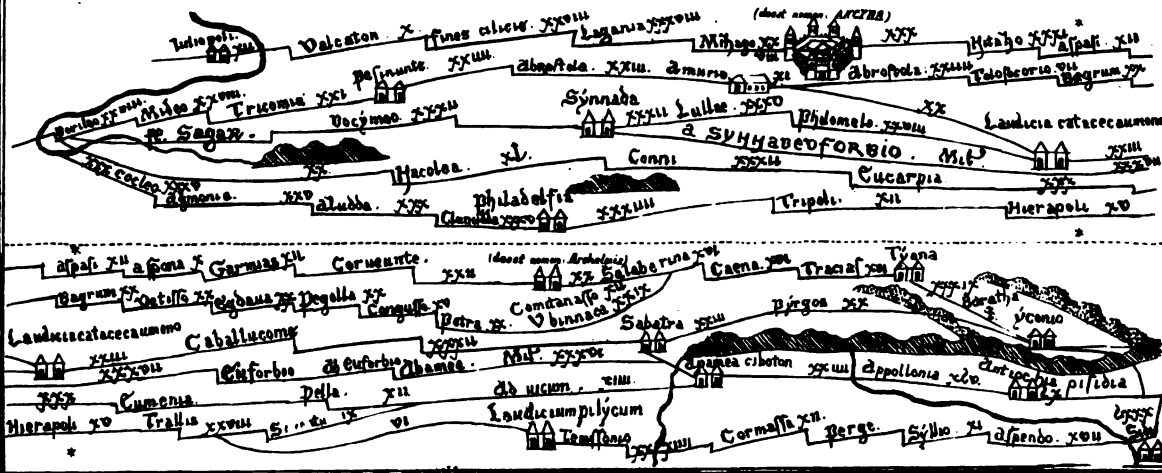 (deest nomen. ANCYRA)
Iuliopoli. XII Valcaton X fines cilicie. XXVIII Lagania XXXVIII Miȝago XXVIII XXX Aspasi XII
pesinunte. XXIIII abrostola. XXIII. amurio XI abrostola. XXIIII Tolosocorio VII Bagrum XX
Dorileo XXVIII Mideo XXVIII Tricomia XXI
fl. Sagar. Docymeo XXXII Synnada XXXII Lullae XXXV Philomelo. XXVIII XX Laudicia catacecaumeno
a SYNNADEUFORBIO. Mil' XXIII
XXX cocleo XXXV XX Nacolea Conni XXXII Eucarpia XXX
agmonia. XXV aludda. XXX Philadelfia XXXIIII Tripoli. XII Hierapoli XV
aspasi XII aspona X Garmias XII Corueunte. XXII (deest nomen. Archelais) XX Salaberina XVI Caena XVI Tracias XVI Tyana
Bagrum XX XX Pegella XX Congusso XV Petra XX Comitanasso XII Ubinnaca XXIX XXXIX Baratha yconio
Laudiciacatacecaumeno XXIII Caballucome XXXII Sabatra XXIII pyrgos XX
XXXVII Euforbio ad Euforbio Abamea Mil' XXXVI apamea ciboton XXIIII appollonia XLV antiochia pisidia
XXX Eumenia Pella. XII ad uicum. XIIII
Hierapoli XV Trallis XXVIII IX VI Laudiciumpilycum Temissonio XXXIIII Cormassa XII. Perge. Syllio XI aspendo XVII